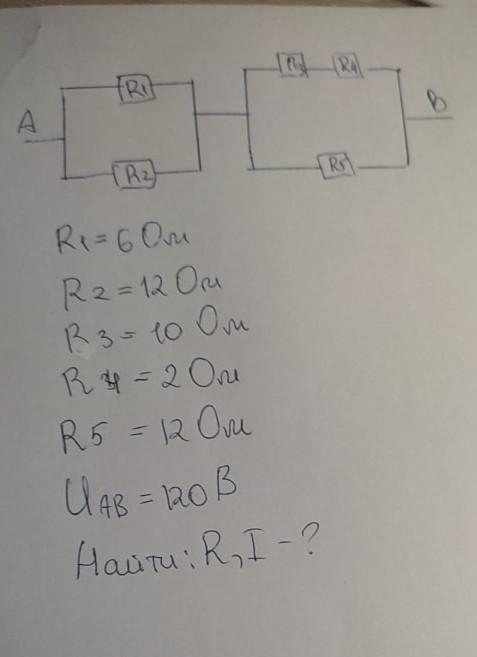 R1
R3 R4
A
B
R2
R5
R1 = 6 Ом
R2 = 12 Ом
R3 = 10 Ом
R4 = 2 Ом
R5 = 12 Ом
UAB = 120 В
Найти: R, I - ?